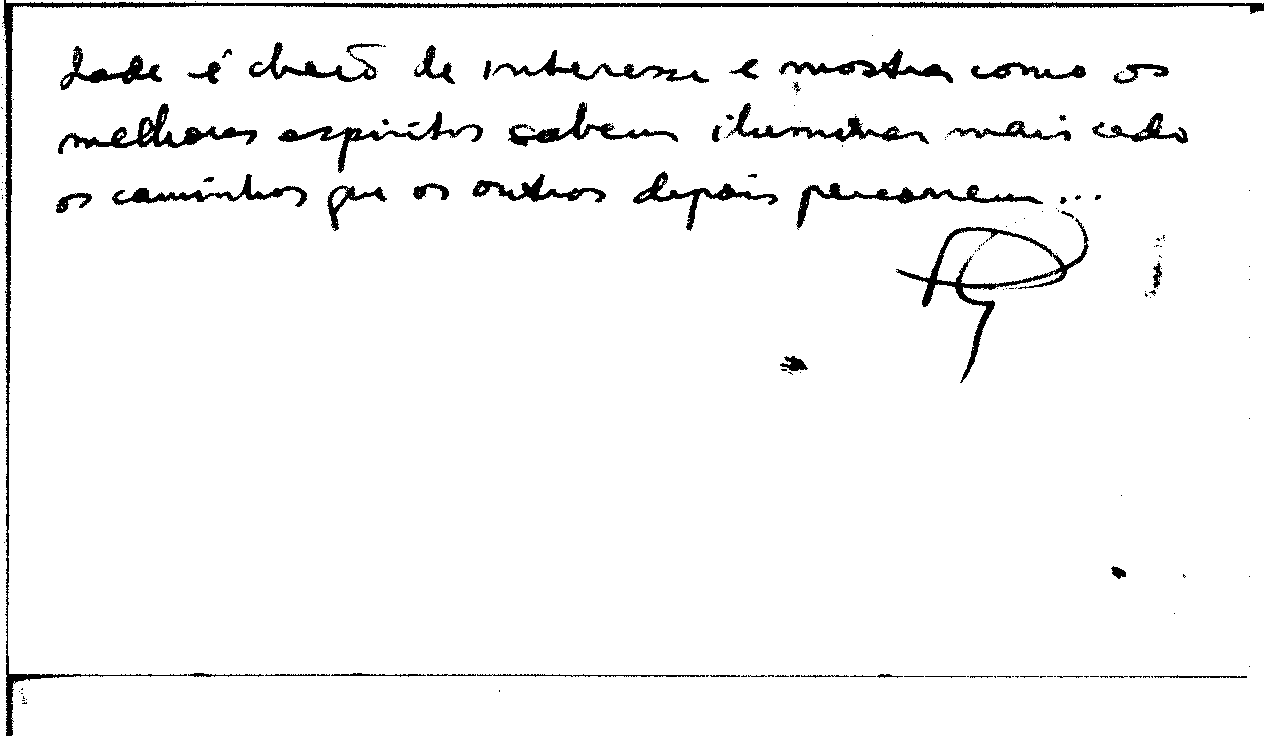 dade é cheio de interesse e mostra como os
melhores espiritos sabem iluminar mais cedo
os caminhos que os outros depois percorrem...